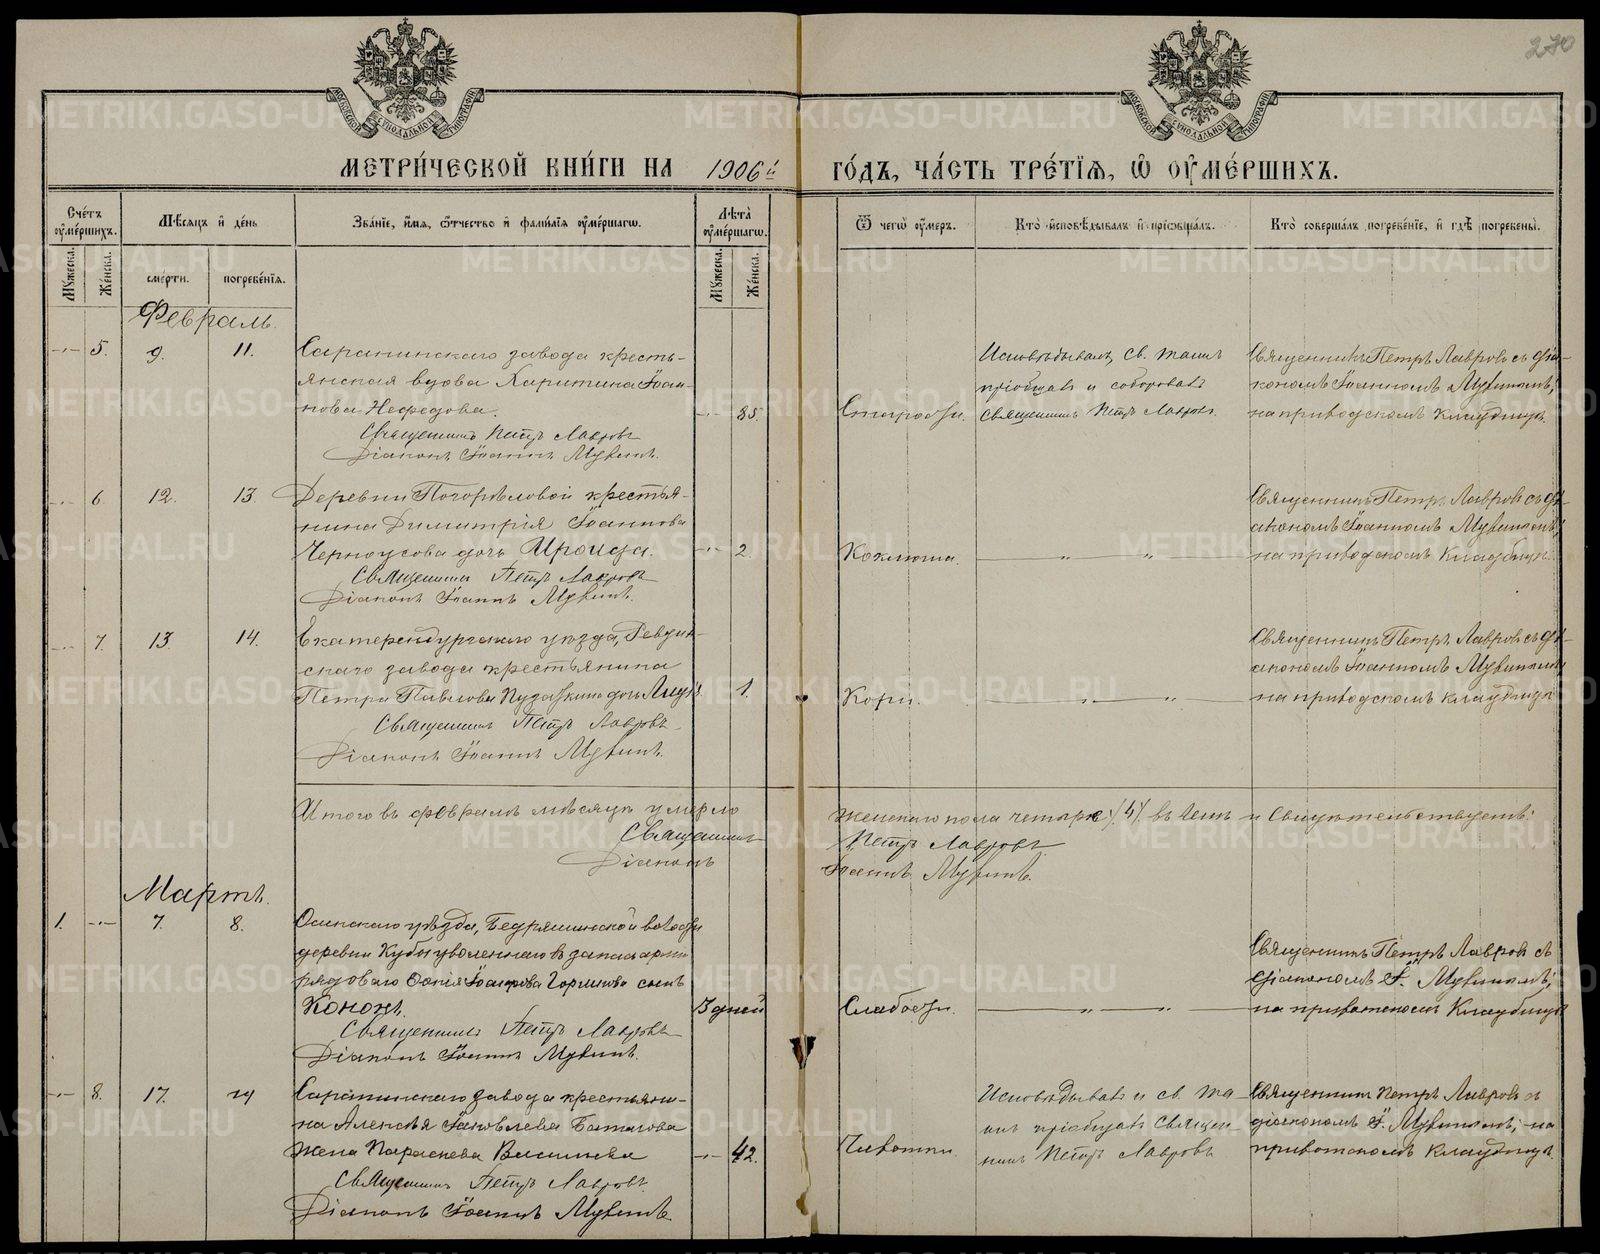 270
МОСКОВСКОЙ СѴНОДАЛЬНОЙ ТИПОГРАФІИ
МОСКОВСКОЙ СѴНОДАЛЬНОЙ ТИПОГРАФІИ
МЕТРИ́ЧЕСКОЙ КНИ́ГИ НА 1906й ГО́ДЪ, ЧА́СТЬ ТРЕ́ТІѦ, Ѡ҆ ОУ҆МЕ́РШИХЪ.
Сче́тъ оу҆ме́ршихъ.
Мѣсяцъ и҆ де́нь
Зва́ніе, и҆́мя, ѻ҆́тчество и҆ фами́лія оу҆ме́ршагѡ.
Лѣта̀ оу҆ме́ршагѡ.
Ѿ чегѡ̀ оу҆́меръ.
Кто̀ и҆сповѣ́дывалъ и҆ пріѡбща́лъ.
Кто̀ соверша́лъ погребе́ніе, и҆ гдѣ̀ погребены̀.
Мꙋ́жеска.
Же́нска.
сме́рти.
погребе́нія.
Мꙋ́жеска.
Же́нска.
Февраль.
5. 9. 11. Саранинскаго завода кресть-
янская вдова Харитина Іоан-
нова Нефедова. 85. Старости.
Священникъ Петръ Лавровъ
Діаконъ Іоаннъ Мувинъ.
Исповѣдывалъ, св. таинъ
пріобщалъ и соборовалъ
священникъ Петръ Лавровъ.
Священникъ Петръ Лавровъ съ діа-
кономъ Іоанномъ Мувинымъ;
на приходскомъ кладбищѣ.
6. 12. 13. Деревни Погорѣловой крестья-
нина Димитрія Іоаннова
Черноусова дочь Ираида. 2. Коклюша. „ „
Священникъ Петръ Лавровъ
Діаконъ Іоаннъ Мувинъ.
Священникъ Петръ Лавровъ съ ді-
акономъ Іоанномъ Мувинымъ;
на приходскомъ кладбищѣ.
7. 13. 14. Екатеринбургскаго уѣзда, Ревдин-
скаго завода крестьянина
Петра Павлова дочь Лидія. 1. Кори. „ „
Священникъ Петръ Лавровъ
Діаконъ Іоаннъ Мувинъ.
Священникъ Петръ Лавровъ съ ді-
акономъ Іоанномъ Мувинымъ;
на приходскомъ кладбищѣ
Итого въ февралѣ мѣсяцѣ умерло женскаго пола четыре /4/ въ чемъ и свидѣтельствуемъ:
Священникъ Петръ Лавровъ
Діаконъ Іоаннъ Мувинъ.
Мартъ.
1. 7. 8. Осинскаго уѣзда, волости
деревни уволеннаго въ запасъ арміи
рядоваго сынъ
Кононъ. 3 дней Слабости. „ „
Священникъ Петръ Лавровъ
Діаконъ Іоаннъ Мувинъ.
Священникъ Петръ Лавровъ съ
діакономъ І. Мувинымъ;
на приходскомъ кладбищѣ
8. 17. 19 Саранинскаго завода крестьяни-
на Алексѣя Іаковлева Баташова
жена Параскева Васильева 42. Чахотки.
Священникъ Петръ Лавровъ.
Діаконъ Іоаннъ Мувинъ.
Исповѣдывалъ и св. та-
инъ пріобщалъ священ-
никъ Петръ Лавровъ
Священникъ Петръ Лавровъ съ
діакономъ І. Мувинымъ; на
приходскомъ кладбищѣ.
METRIKI.GASO-URAL.RU